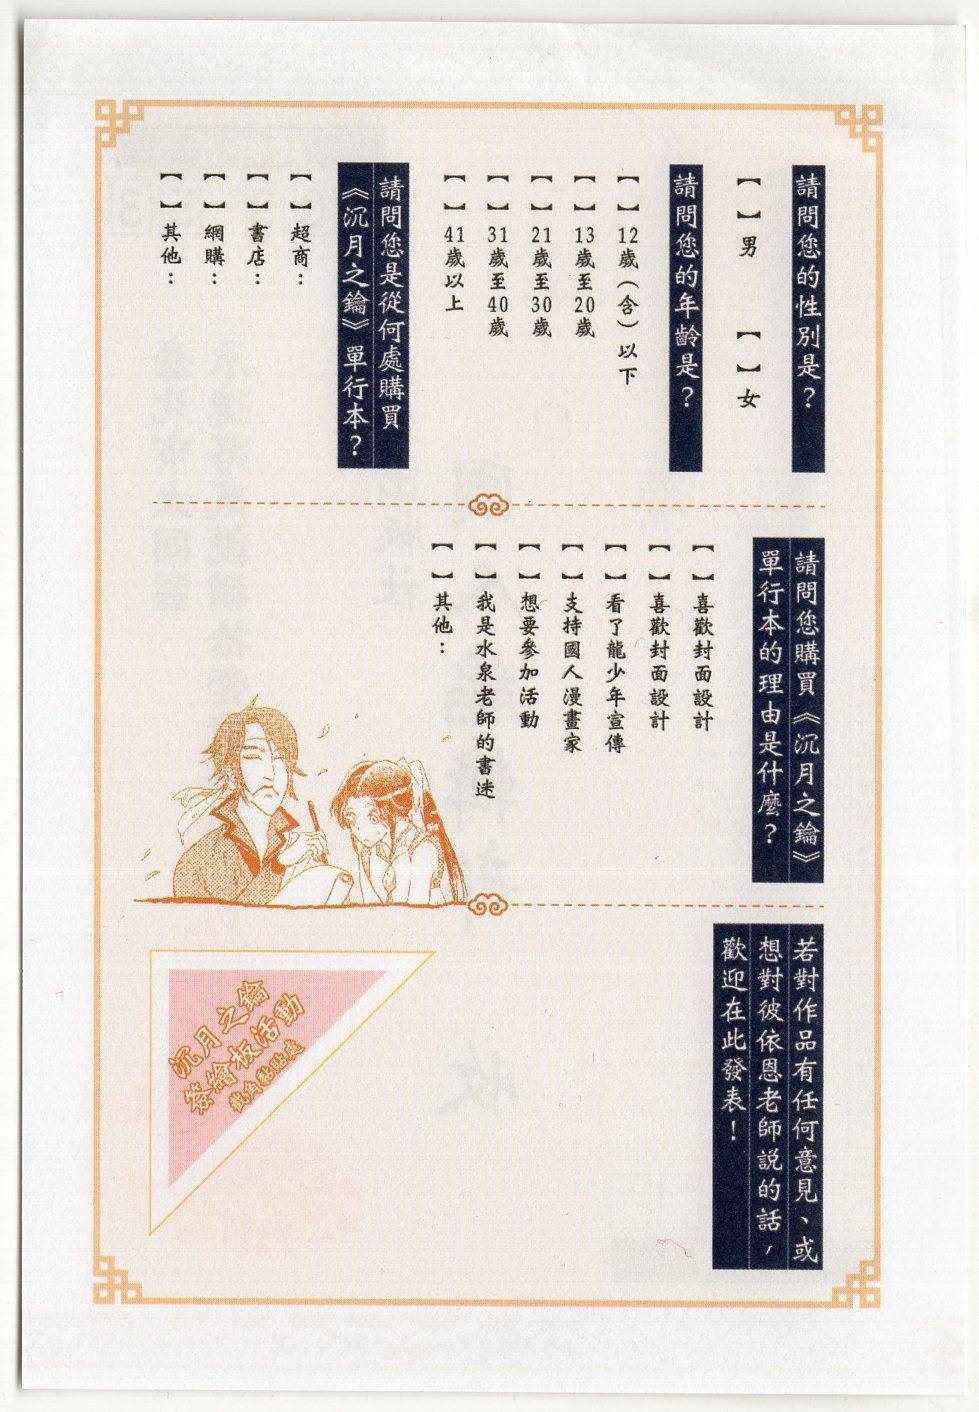 請問您的性別是？
【　】男　　【　】女
請問您的年齡是？
【　】12歲（含）以下
【　】13歲至20歲
【　】21歲至30歲
【　】31歲至40歲
【　】41歲以上
請問您是從何處購買
《沉月之鑰》單行本？
【　】超商：
【　】書店：
【　】網購：
【　】其他：
請問您購買《沉月之鑰》
單行本的理由是什麼？
【　】喜歡封面設計
【　】喜歡封面設計
【　】看了龍少年宣傳
【　】支持國人漫畫家
【　】想要參加活動
【　】我是水泉老師的書迷
【　】其他：
若對作品有任何意見、或
想對彼依恩老師說的話，
歡迎在此發表！
沉月之鑰
簽繪板活動
截角黏貼處